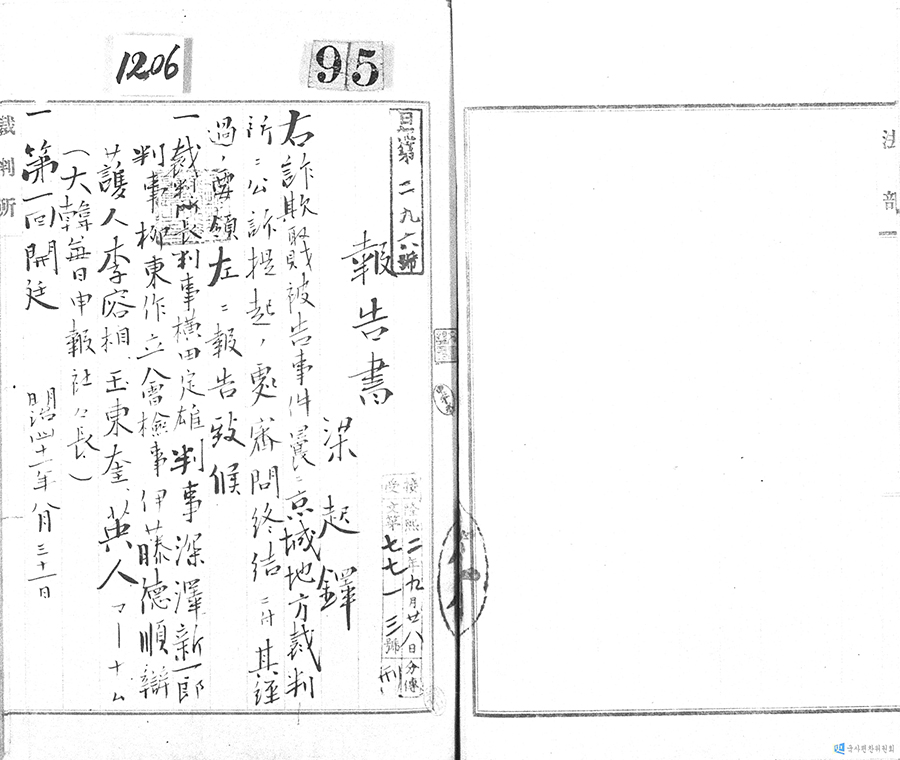 1206
95
第二九六號
報告書
梁起鐸
右詐欺取財被告事件曩ニ京城地方裁判
所ニ公訴提起ノ處審問終結ニ付其經
過ノ要領左ニ報告致候
一裁判所長判事橫田定雄判事深澤新一郎
判事柳東作立會檢事伊藤德順辯
護人李容相、玉東奎、英人マーナム
(大韓每日申報社々長)
一第一回開廷 明治四十一年八月三十一日
接受
隆熙二年九月廿八日
文第七七一三號
裁判所
국사편찬위원회